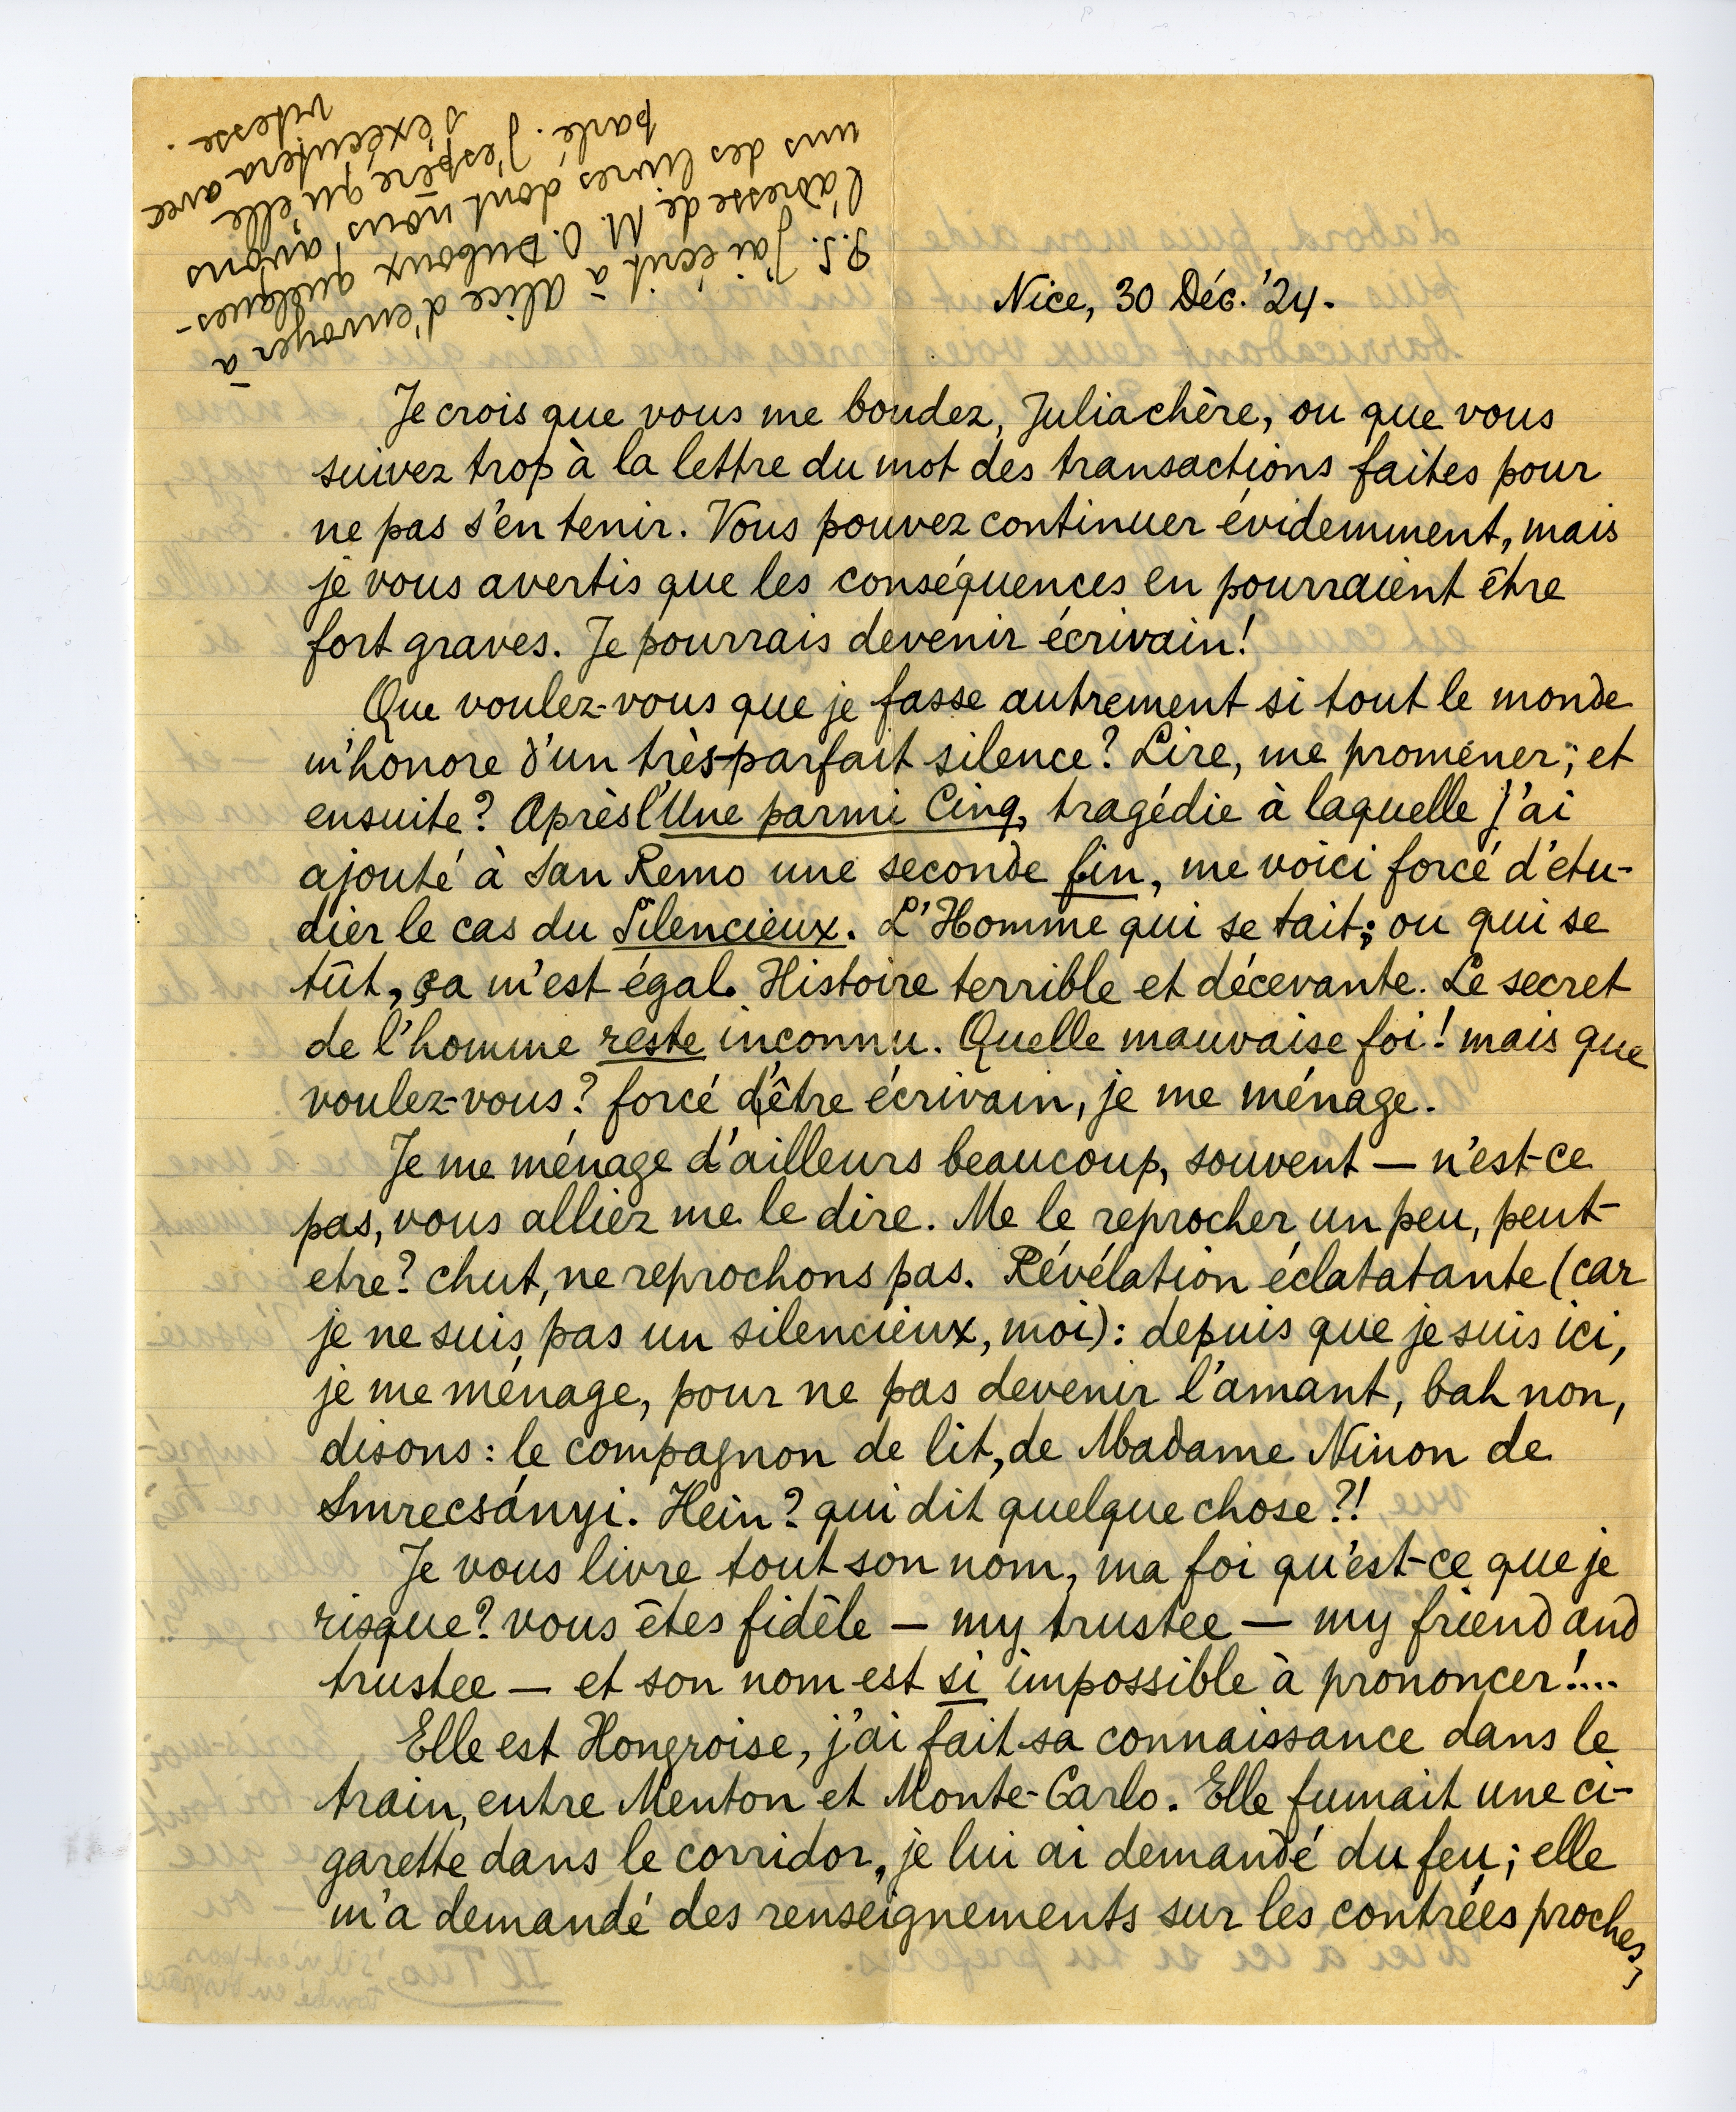 Nice, 30 Déc. '24.
Je crois que vous me boudez, Julia chère, ou que vous
suivez trop à la lettre du mot des transactions faites pour
ne pas s'en tenir. Vous pouvez continuer évidemment, mais
je vous avertis que les conséquences en pourraient être
fort graves. Je pourrais devenir écrivain!
Que voulez-vous que je fasse autrement si tout le monde
m'honore d'un très-parfait silence? Lire, me promener; et
ensuite? Après l'Une parmi Cinq, tragédie à laquelle j'ai
ajouté à San Remo une seconde fin, me voici forcé d'étu-
dier le cas du Silencieux. L'Homme qui se tait; ou qui se
tût, ça m'est égal. Histoire terrible et décevante. Le secret
de l'homme reste inconnu. Quelle mauvaise foi! mais que
voulez-vous? forcé d'être écrivain, je me ménage.
Je me ménage d'ailleurs beaucoup, souvent — n'est-ce
pas, vous alliez me le dire. Me le reprocher un peu, peut-
etre? chut, ne reprochons pas. Révélation éclatatante (car
je ne suis pas un silencieux, moi): depuis que je suis ici,
je me ménage, pour ne pas devenir l'amant, bah non,
disons: le compagnon de lit, de Madame Ninon de
Smrecsányi. Hein? qui dit quelque chose?!
Je vous livre tout son nom, ma foi qu'est-ce que je
risque? vous êtes fidèle — my trustee — my friend and
trustee — et son nom est si impossible à prononcer!...
Elle est Hongroise, j'ai fait sa connaissance dans le
train, entre Menton et Monte-Carlo. Elle fumait une ci-
garette dans le corridor, je lui ai demandé du feu; elle
m'a demandé des renseignements sur les contrées proches,
P.S. J'ai écrit à Alice d'envoyer à
l'adresse de M. O. Duboux quelques-
uns des livres dont nous avons
parlé. J'espère qu'elle
s'exécutera avec
vitesse.